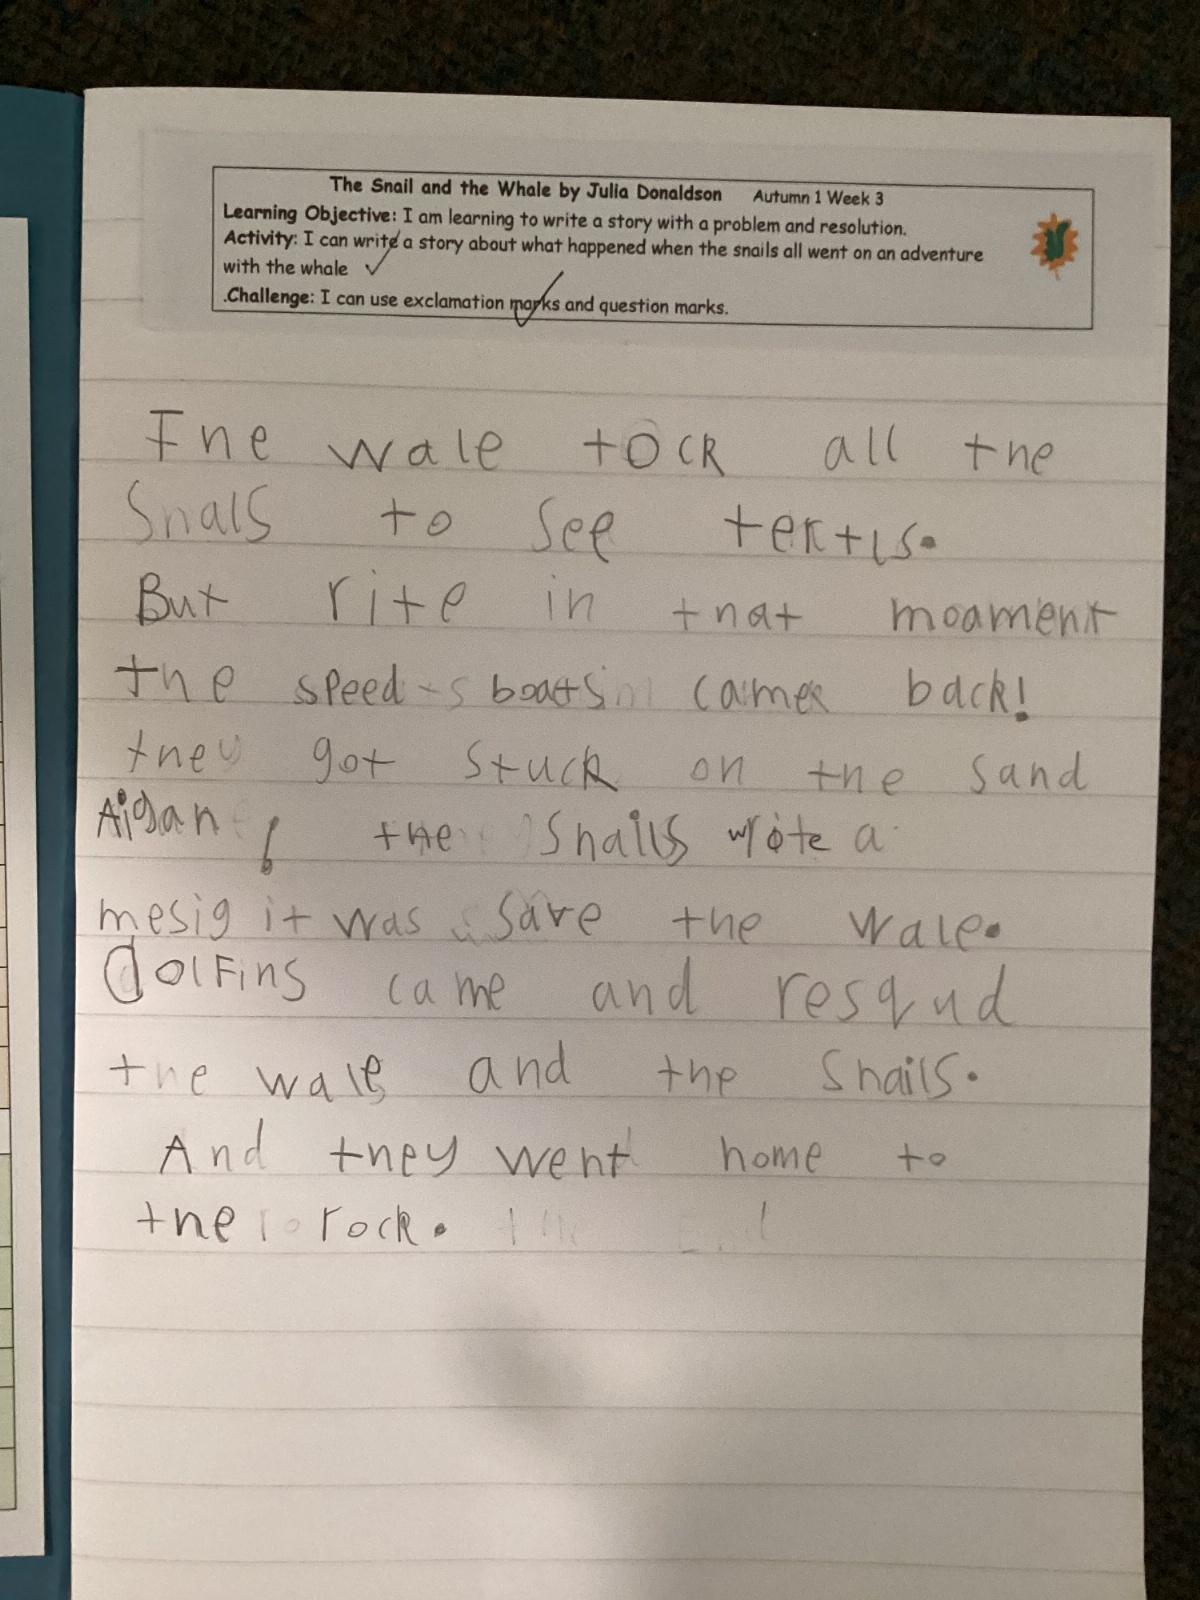 The Snail and the Whale by Julia Donaldson Autumn 1 Week 3
Learning Objective: I am learning to write a story with a problem and resolution.
Activity: I can write a story about what happened when the snails all went on an adventure
with the whale
.Challenge: I can use exclamation marks and question marks.
The wale tock all the
Snals to see tertls.
But rite in that moament
the speed boats came back!
they got stuck on the sand
Aigan! the Snails wrote a
mesig it was save the wale.
dolfins came and resqud
the wale and the Snails.
And they went home to
the rock.